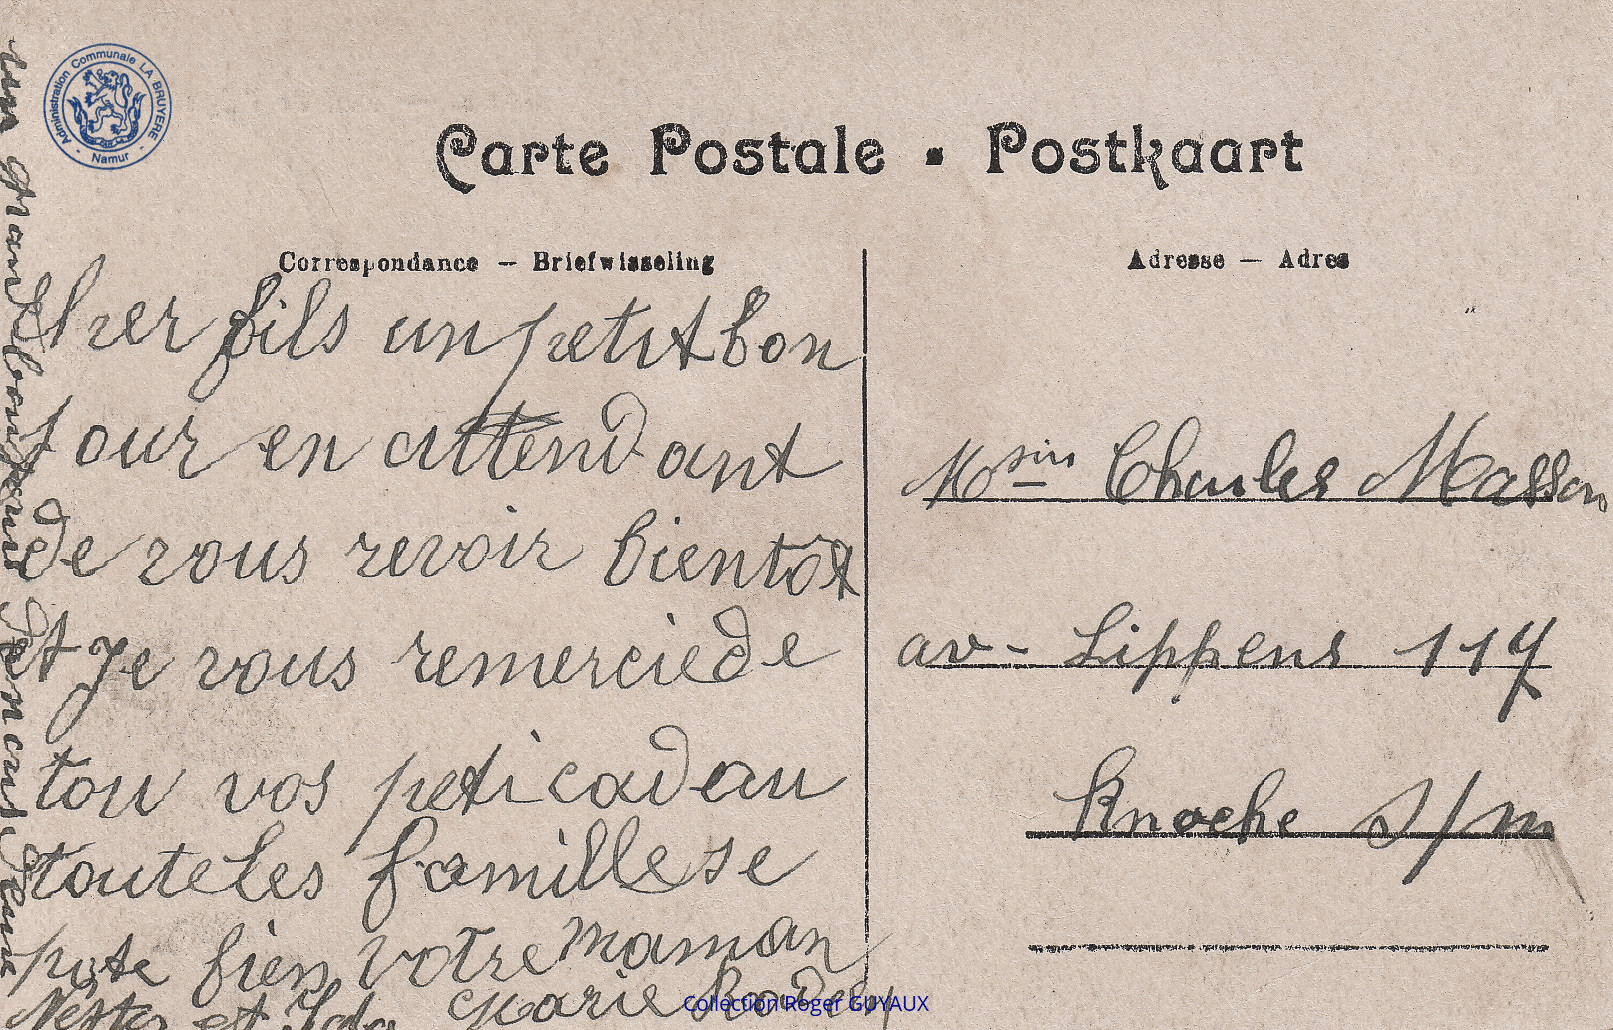 Administration Communale LA BRUYERE
Namur
Carte Postale ▪ Postkaart
Correspondance — Briefwisseling
Adresse — Adres
Cher fils un petit bon
jour en attendant
de vous revoir bientot
et Je vous remercie de
tou vos peti cadau
toute les famille se
pote bien votre maman
Nestor et Ida Marie
un grand
Msin Charles Masson
av- Lippens 117
Knocke s/m
Collection Roger GUYAUX